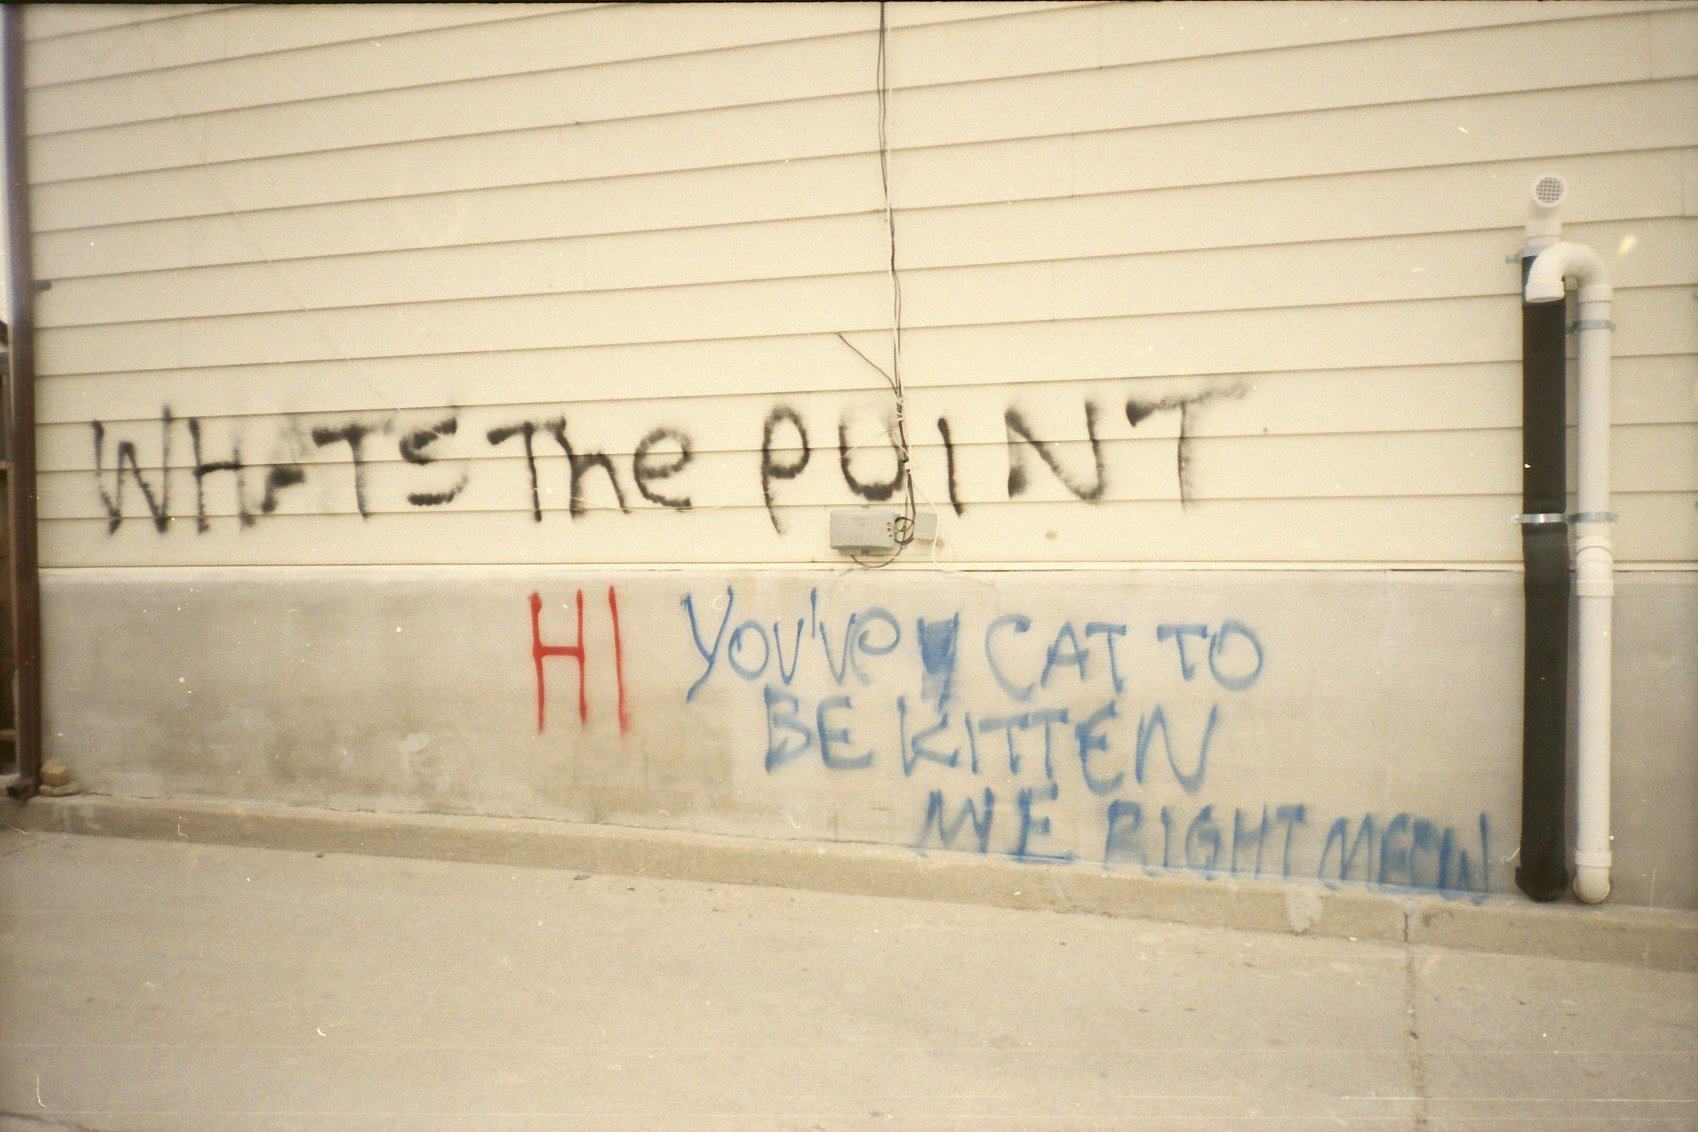 WHATS The POINT
HI YOU'Ve CAT TO
BE KITTEN
ME RIGHT MEOW